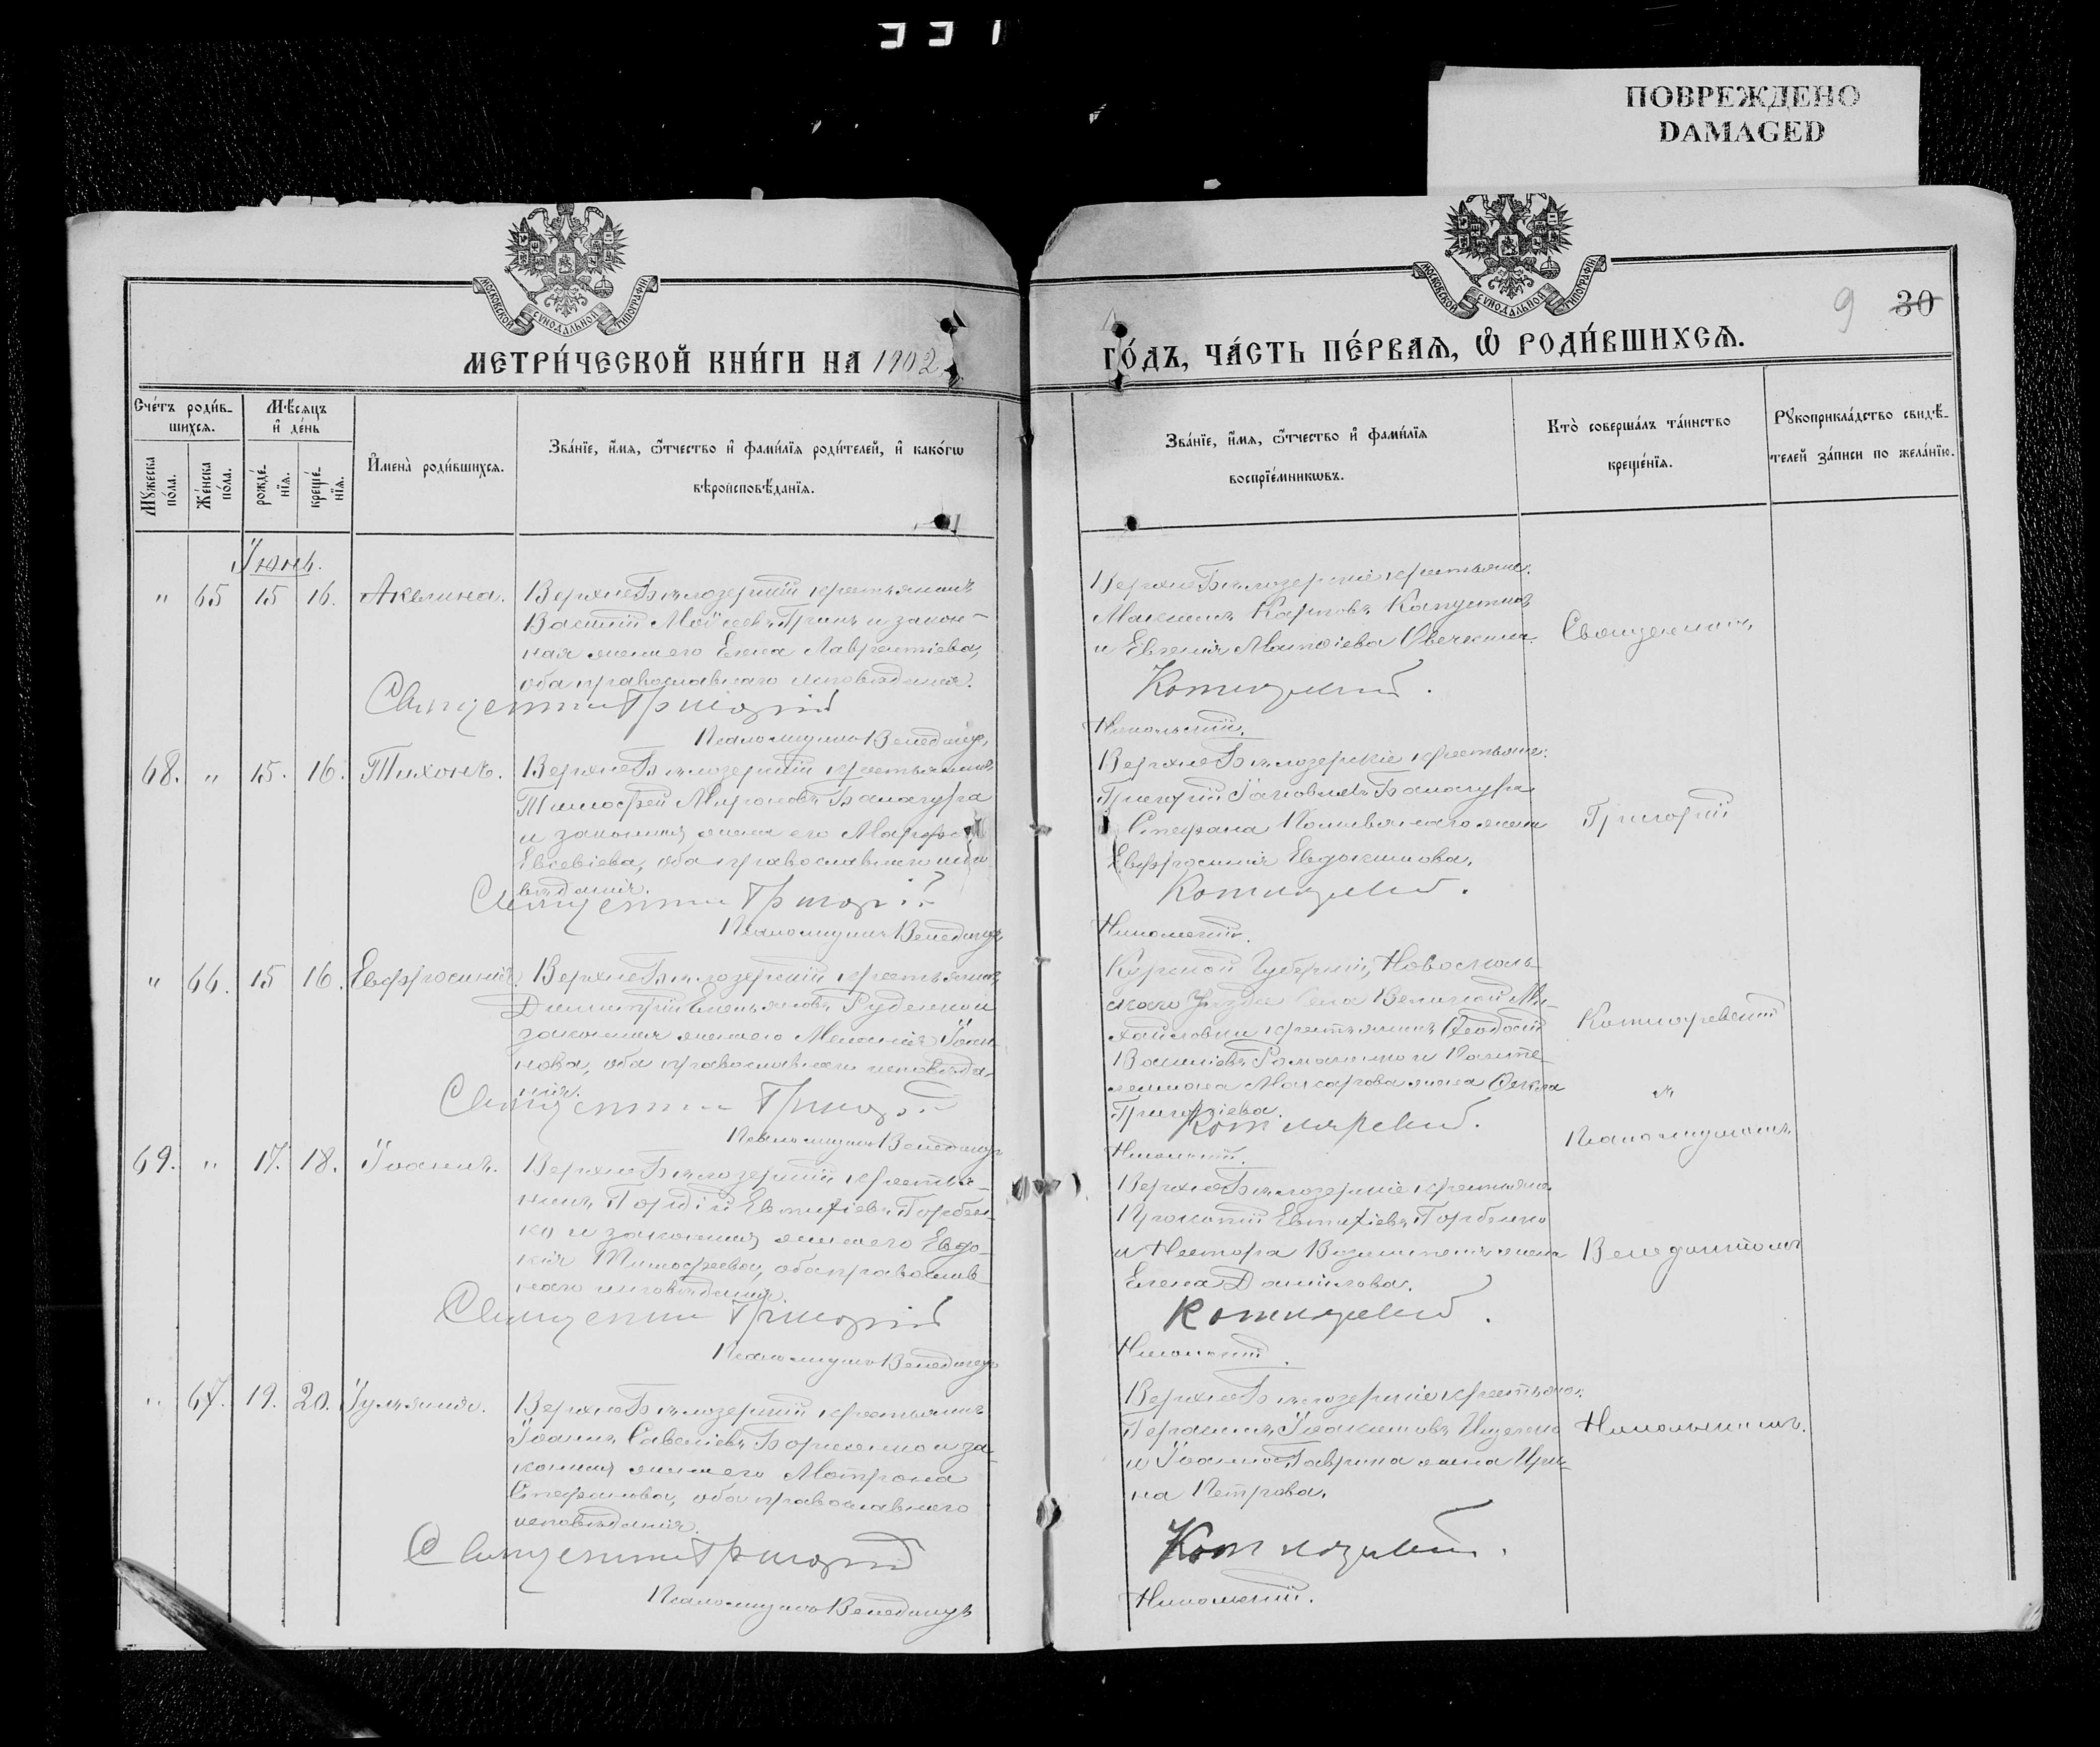 331
ПОВРЕЖДЕНО
DAMAGED
МОСКОВСКОЙ СѴНОДАЛЬНОЙ ТИПОГРАФІИ
МОСКОВСКОЙ СѴНОДАЛЬНОЙ ТИПОГРАФІИ
9 30
МЕТРИ́ЧЕСКОЙ КНИ́ГИ НА 1902
ГО́ДЪ, ЧА́СТЬ ПЕ́РВАѦ, Ѽ РОДИ́ВШИХСѦ.
Счéтъ роди́в-
шихсѧ.
Мꙋ́жеска
по́ла.
Же́нска
по́ла.
Мѣ́сѧцъ
и҆ де́нь
рожде́-
нїѧ.
креще́-
нїѧ.
И҆мена̀ роди́вшихсѧ.
Зва́нїе, и҆́мѧ, ѻ҆́тчество и҆ фами́лїѧ роди́телей, и҆ како́гѡ
вѣроисповѣ́данїѧ.
Зва́нїе, и҆́мѧ, ѻ҆́тчество и҆ фами́лїѧ
воспрїе́мникѡвъ.
Кто̀ соверша́лъ та́инство
креще́нїѧ.
Рꙋкоприкла́дство свидѣ́-
телей за́писи по жела́нїю.
Іюнь.
" 65 15 16. Акилина.
Верхне Бѣлозерскій крестьянинъ
Василій Моѵсеевъ Гринь и закон-
ная жена его Елена Лаврентіева,
оба православнаго исповѣданія.
Священникъ Григорій
Псаломщикъ Венедиктъ
Верхне Бѣлозерскіе крестьяне:
Максимъ Карповъ Капустинъ
и Евгенія Матѳіева Овечкина.
Котляревскій.
Никольскій.
Священникъ
68. " 15. 16. Тихонъ.
Верхне Бѣлозерскій крестьянинъ
Тимофей Мироновъ Балагура
и законная жена его Марфа
Евсевіева, оба православнаго испо
вѣданія.
Священникъ Григорій
Псаломщикъ Венедиктъ
Верхне Бѣлозерскіе крестьяне:
Григорій Іаковлевъ Балагура
Стефана Поливянаго жена
Евфросинія Евдокимова.
Котляревскій.
Никольскій.
Григорій
" 66. 15 16. Евфросинія.
Верхне Бѣлозерскій крестьянинъ
Димитрій Емельяновъ Руденко и
законная жена его Меланія Іоан-
нова, оба православнаго исповѣда-
нія.
Священникъ Григорій
Псаломщикъ Венедиктъ
Курской Губерніи, Новосколь-
скаго Уѣзда Села Великой Ми-
хайловки крестьянинъ Ѳеодосій
Василіевъ Романенко и Панте-
леимона Макарова жена Ѳекла
Григоріева.
Котляревскій.
Никольскій.
Котляревскій
и
Псаломщикъ
69. " 17. 18. Іоаннъ.
Верхне Бѣлозерскій крестья-
нинъ Гордій Евтихіевъ Горбен-
ко и законная жена его Евдо-
кія Тимофеева, оба православ-
наго исповѣданія.
Священникъ Григорій
Псаломщикъ Венедиктъ
Верхне Бѣлозерскіе крестьяне:
Прокопій Евтихіевъ Горбенко
и Нестора жена
Елена Даніилова.
Котляревскій.
Никольскій.
Венедиктомъ
" 67. 19. 20. Іульянія.
Верхне Бѣлозерскій крестьянинъ
Іоаннъ Савеліевъ Борисенко и за-
конная жена его Матрона
Стефанова, оба православнаго
исповѣданія.
Священникъ Григорій
Псаломщикъ Венедиктъ
Верхне Бѣлозерскіе крестьяне:
Герасимъ Іоакимовъ Ищенко
и Іоанна Гаврина жена Ири-
на Петрова.
Котляревскій.
Никольскій.
Никольскимъ.